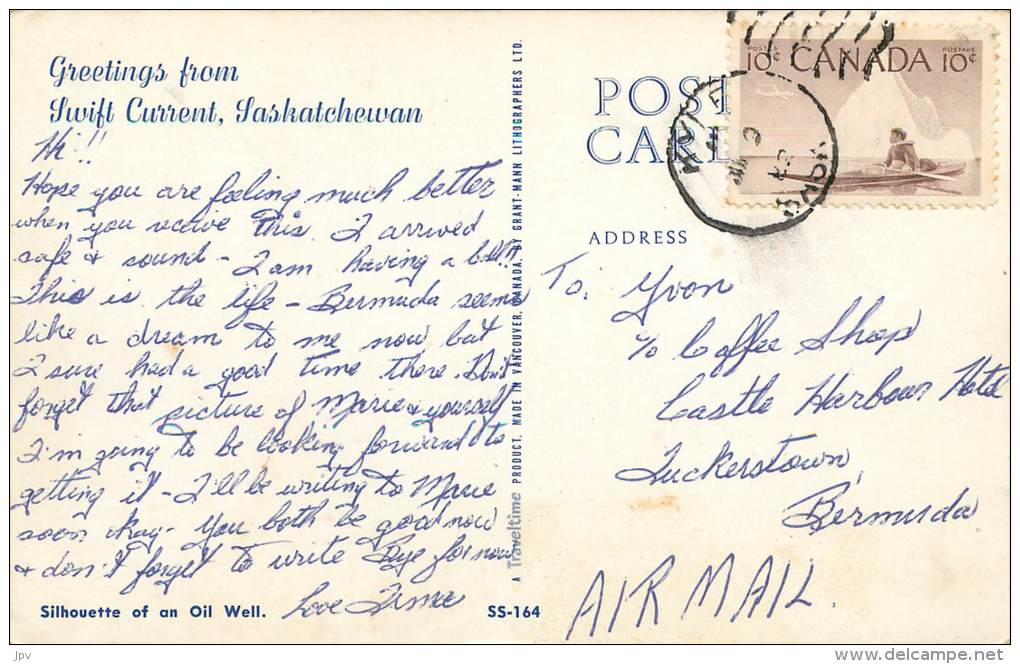 Greetings from
Swift Current, Saskatchewan
Hi!!
Hope you are feeling much better
when you receive this. I arrived
safe & sound - I am having a ball!!
This is the life - Bermuda seems
like a dream to me now but
I sure had a good time there. Don't
forget that picture of Marie & yourself
I'm going to be looking forward to
getting it - I'll be writing to Marie
soon okay - You both be good now
& don't forget to write Bye for now
Love
Silhouette of an Oil Well.
SS-164
A Traveltime PRODUCT, MADE IN VANCOUVER, CANADA, BY GRANT-MANN LITHOGRAPHERS LTD.
POST
CARD
POSTES POSTAGE
10¢ CANADA 10¢
ADDRESS
To, Yvon
% Coffee Shop
Castle Harbour Hotel
Tuckerstown,
Bermuda
AIR MAIL.
jpv
http://www.delcampe.net